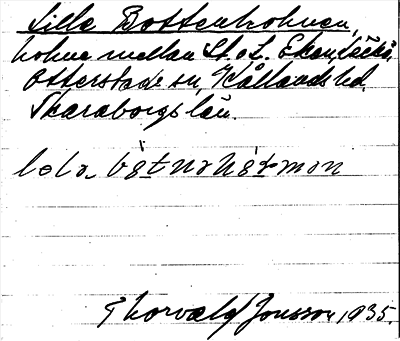 Lilla Bottenholmen,
holme mellan St. o L. Eken, Läckö,
Otterstads sn, Kållands hd.
Skaraborgs län.
Thorvald Jonsson, 1935.